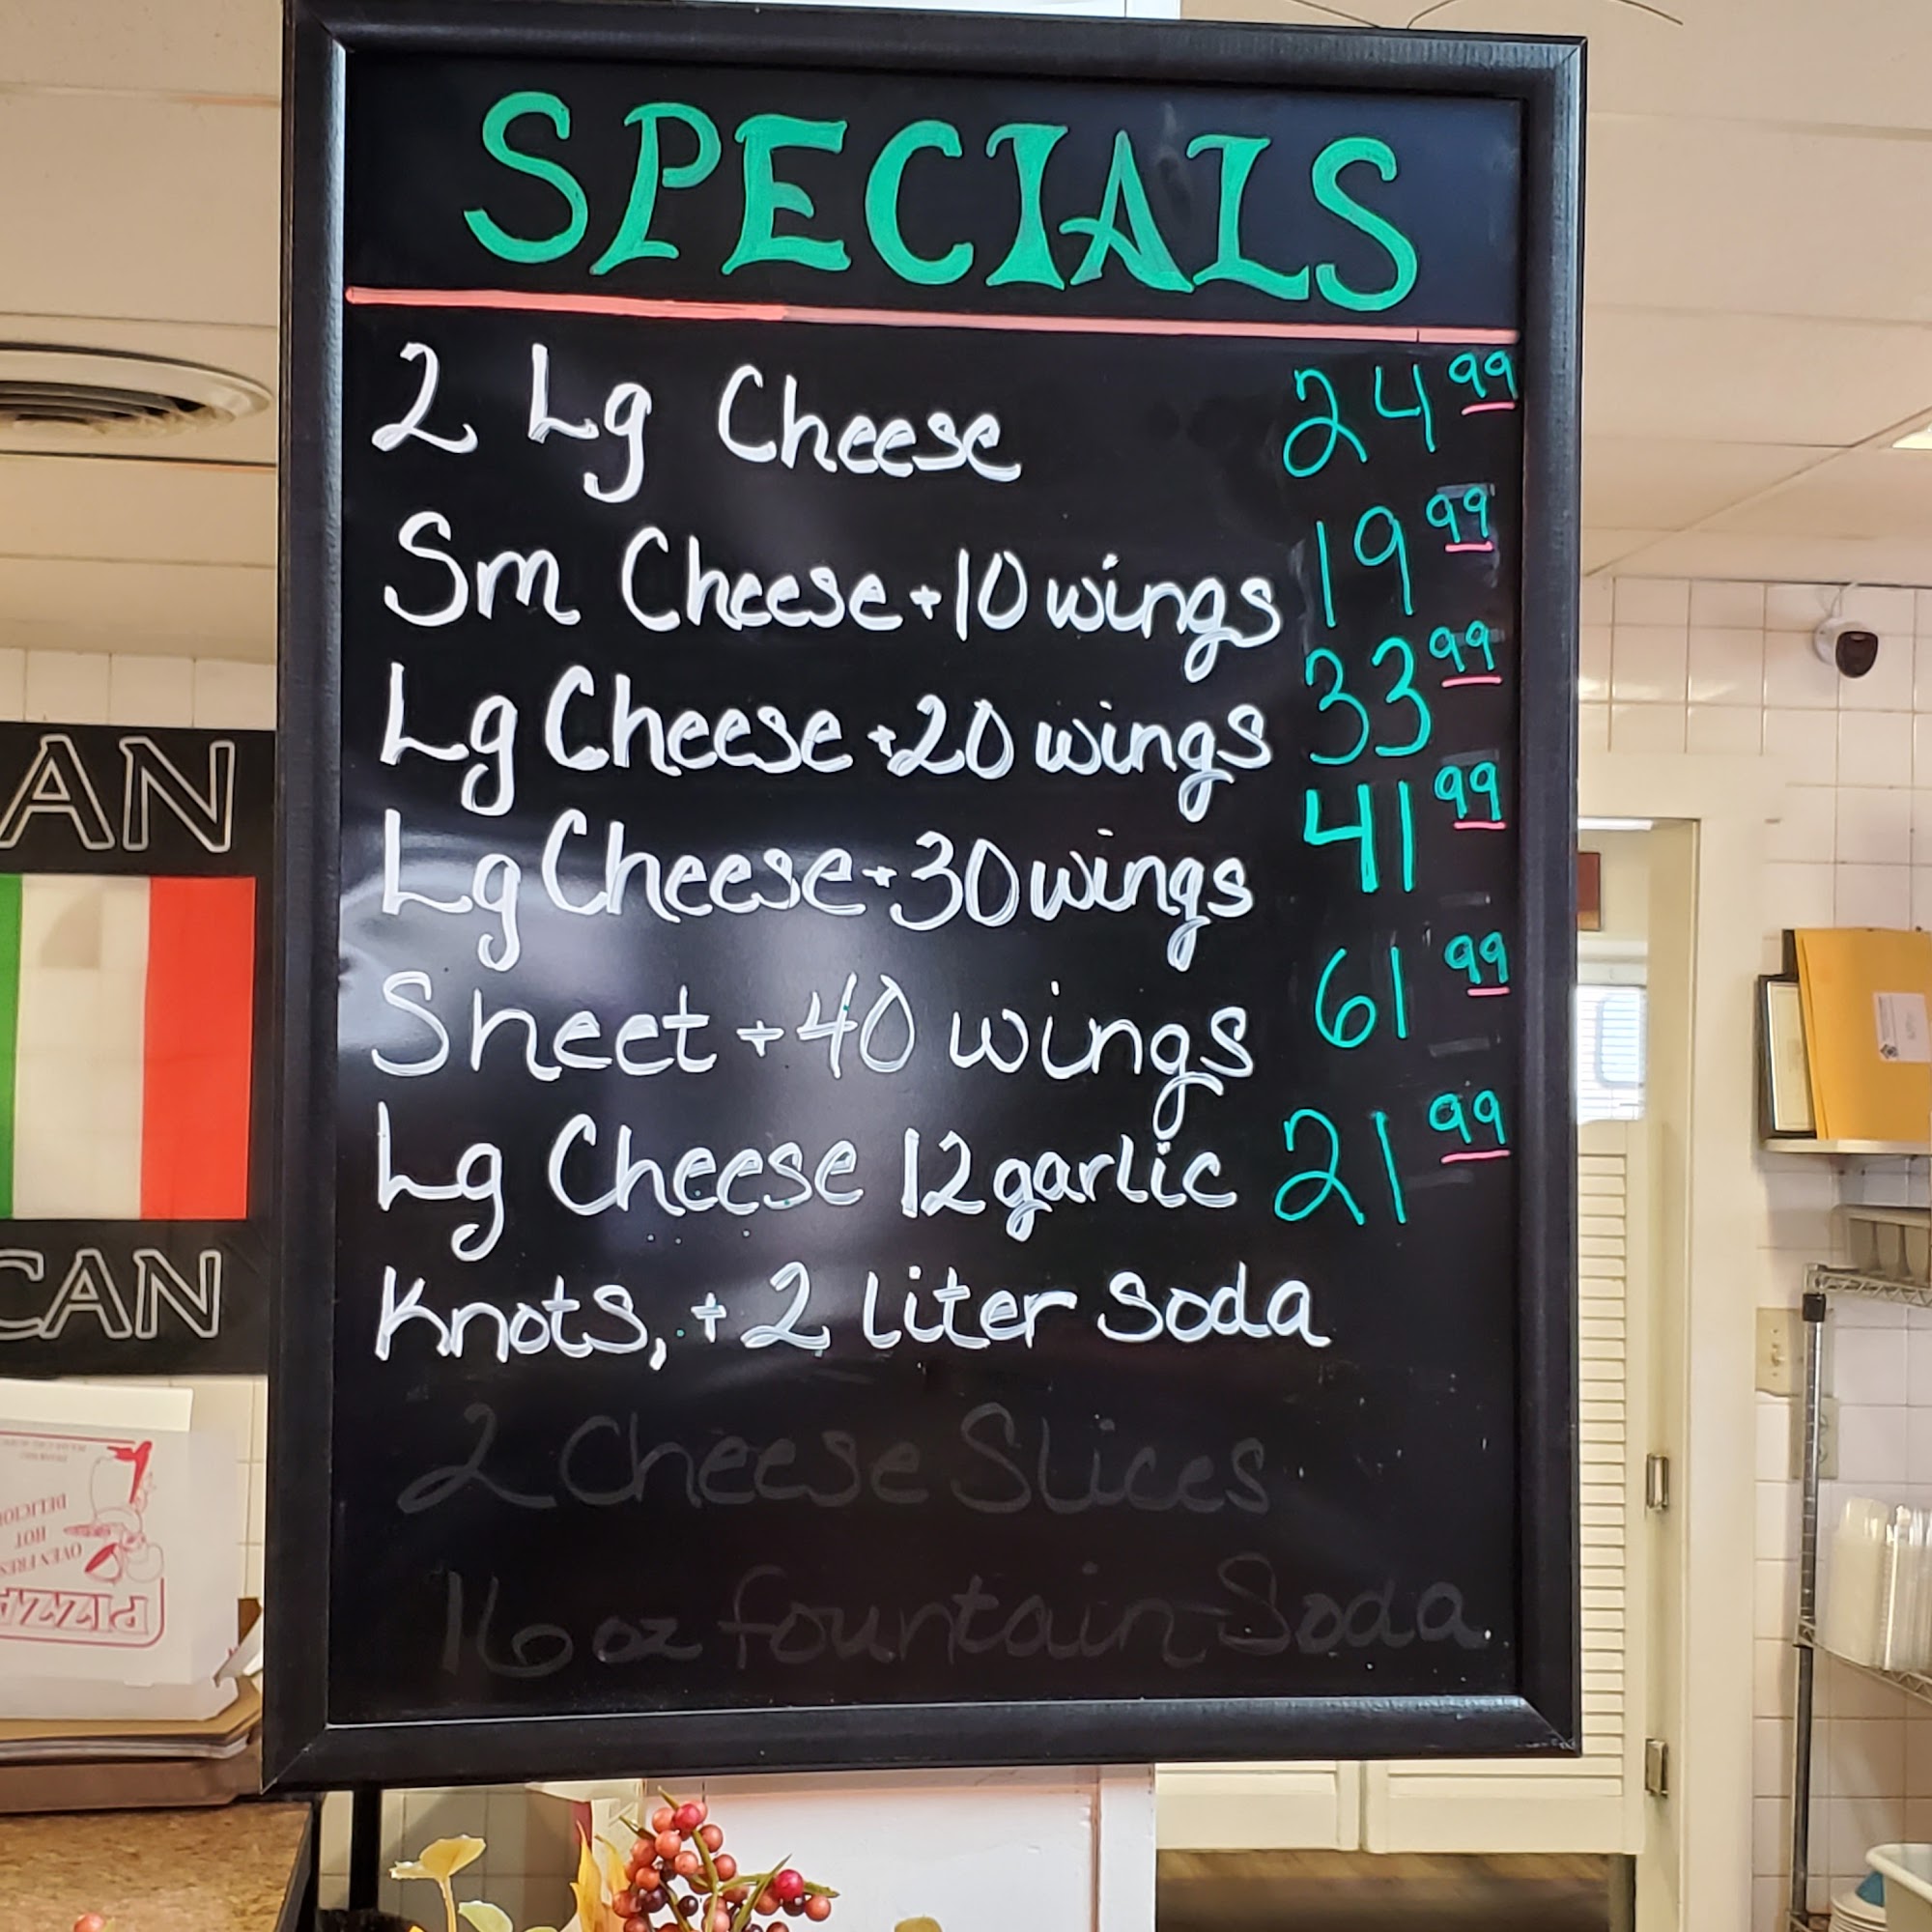 SPECIALS
2 Lg Cheese 24 99
Sm Cheese + 10 wings 19 99
Lg Cheese + 20 wings 33 99
Lg Cheese + 30 wings 41 99
Sheet + 40 wings 61 99
Lg Cheese 12 garlic 21 99
Knots, + 2 liter Soda
2 Cheese Slices
16 oz fountain Soda
AN
CAN
DELICIOU
HOT
OVEN FRES
PIZZA